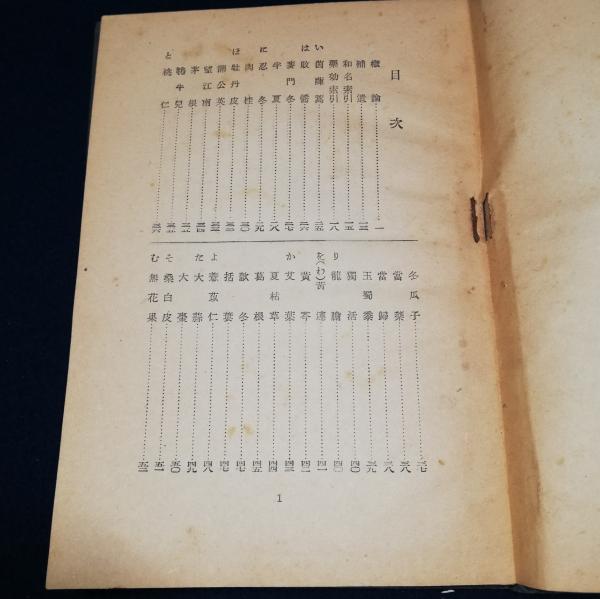 目次
概論……一
補遺……一三
和名索引……一五
藥効索引……一八
い 茵蔯蒿……二五
は 敗醬……二六
麥門冬……二七
半夏……二八
に 忍冬……二九
肉桂……三〇
ほ 牡丹皮……三二
蒲公英……三三
望江南……三四
茅根……三五
牛兒……三五
と 桃仁……三六
冬瓜子……三七
當藥……三八
當歸……三八
玉蜀黍……三九
獨活……四〇
り 龍膽……四〇
を(わ) 黄連……四一
黄芩……四二
か 艾葉……四三
夏枯草……四四
葛根……四五
款冬……四七
括蔞……四七
よ 薏苡仁……四八
た 大蒜……四九
大棗……五〇
そ 桑白皮……五一
む 無花果……五二
1